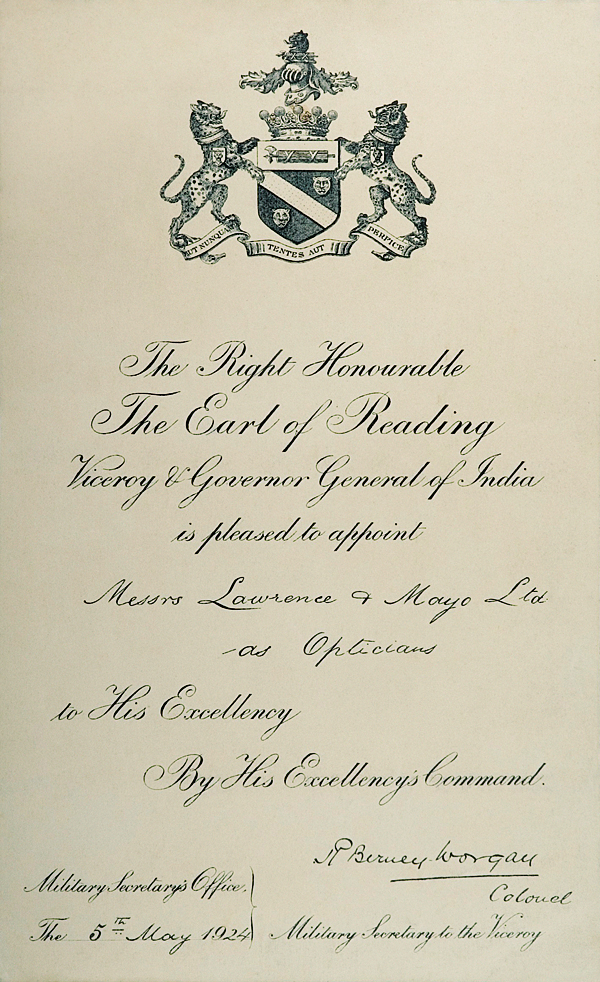 AUT NUNQUAM TENTES AUT PERFICE
The Right Honourable
The Earl of Reading
Viceroy & Governor General of India
is pleased to appoint
Messrs Lawrence & Mayo Ltd.
as Opticians
to His Excellency
By His Excellency's Command.
R Berney-Worgan
Colonel
Military Secretary's Office,
The 5TH May 1924
Military Secretary to the Viceroy